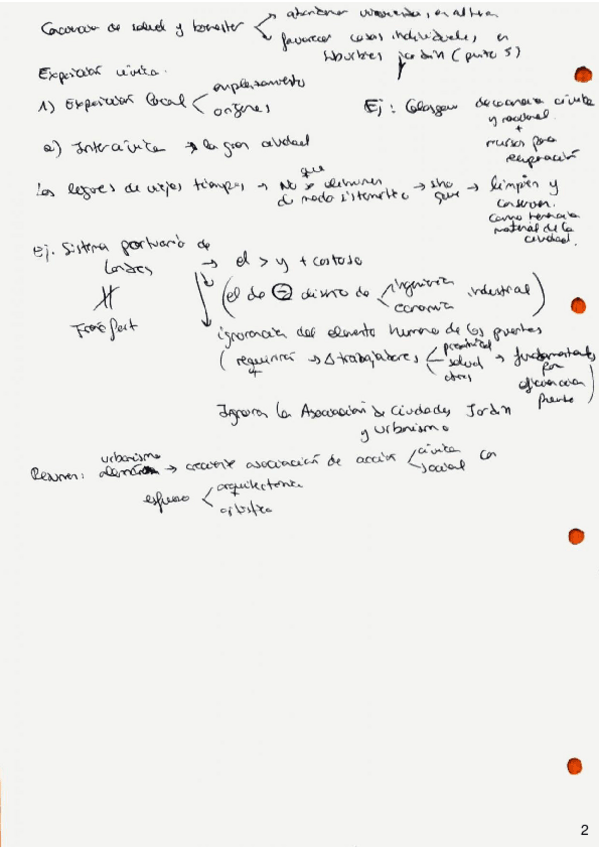 de salud y bienestar → abandonar viviendas, en altura
→ favorecer casas individuales, en
suburbios jardín (punto 5)
Exposición cívica.
1) Exposición local < emplazamiento
orígenes
Ej: Glasgow decadencia cívica
y nacional
+
recursos para
recuperación
2) Intercívica → la gran ciudad
Los legores de viejos tiempos → que No se eliminen
di modo sistemático → sino que → limpien y
conserven
como herencia
material de la
ciudad.
Ej. Sistema portuario de
Londres → el > y + costoso
Frankfort
(el de ⊖ diseño de < ingeniería
economía
industrial)
ignorancia del elemento humano de los puertos
(requiriría + → Δ trabajadores < 
salud
otros
→ fundamentales
por
eficiencia
puerto)
Ignora la Asociación de Ciudades Jardín
y urbanismo
Resumen: urbanismo
alemán → creciente asociación de acción < cívica
social
con
esfuerzo < arquitectónico
artístico
2